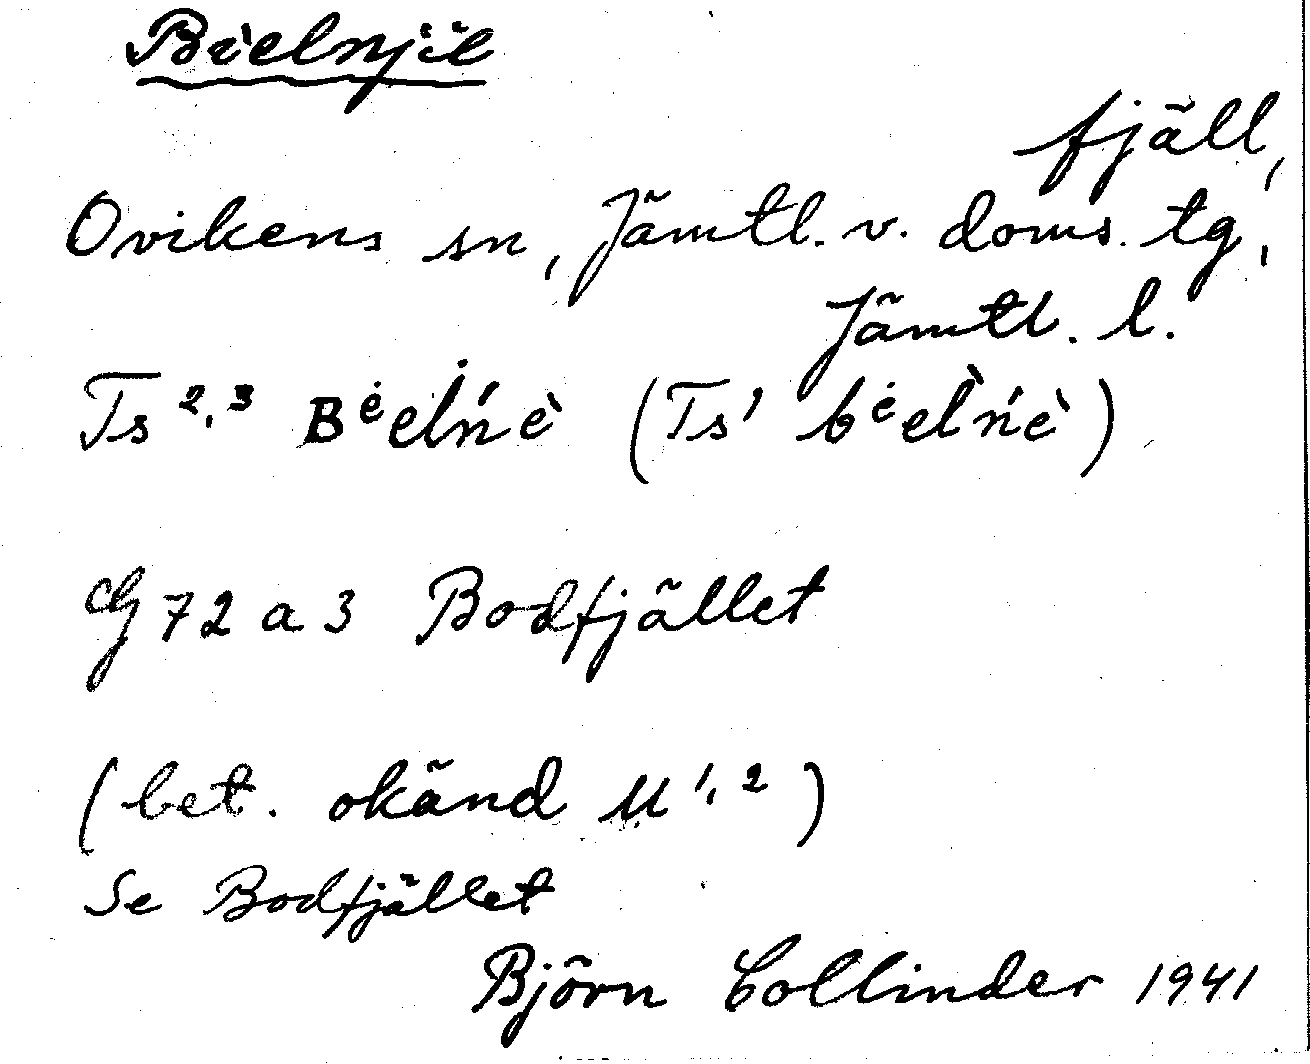 Bielnjie
fjäll,
Ovikens sn, Jämtl. v. doms. tg,
Jämtl. l.
Ts 2,3 Bėelńè (Ts1 bėelǹè)
G 72 a 3 Bodfjället
(bet. okänd M 1,2)
Se Bodfjället
Björn Collinder 1941